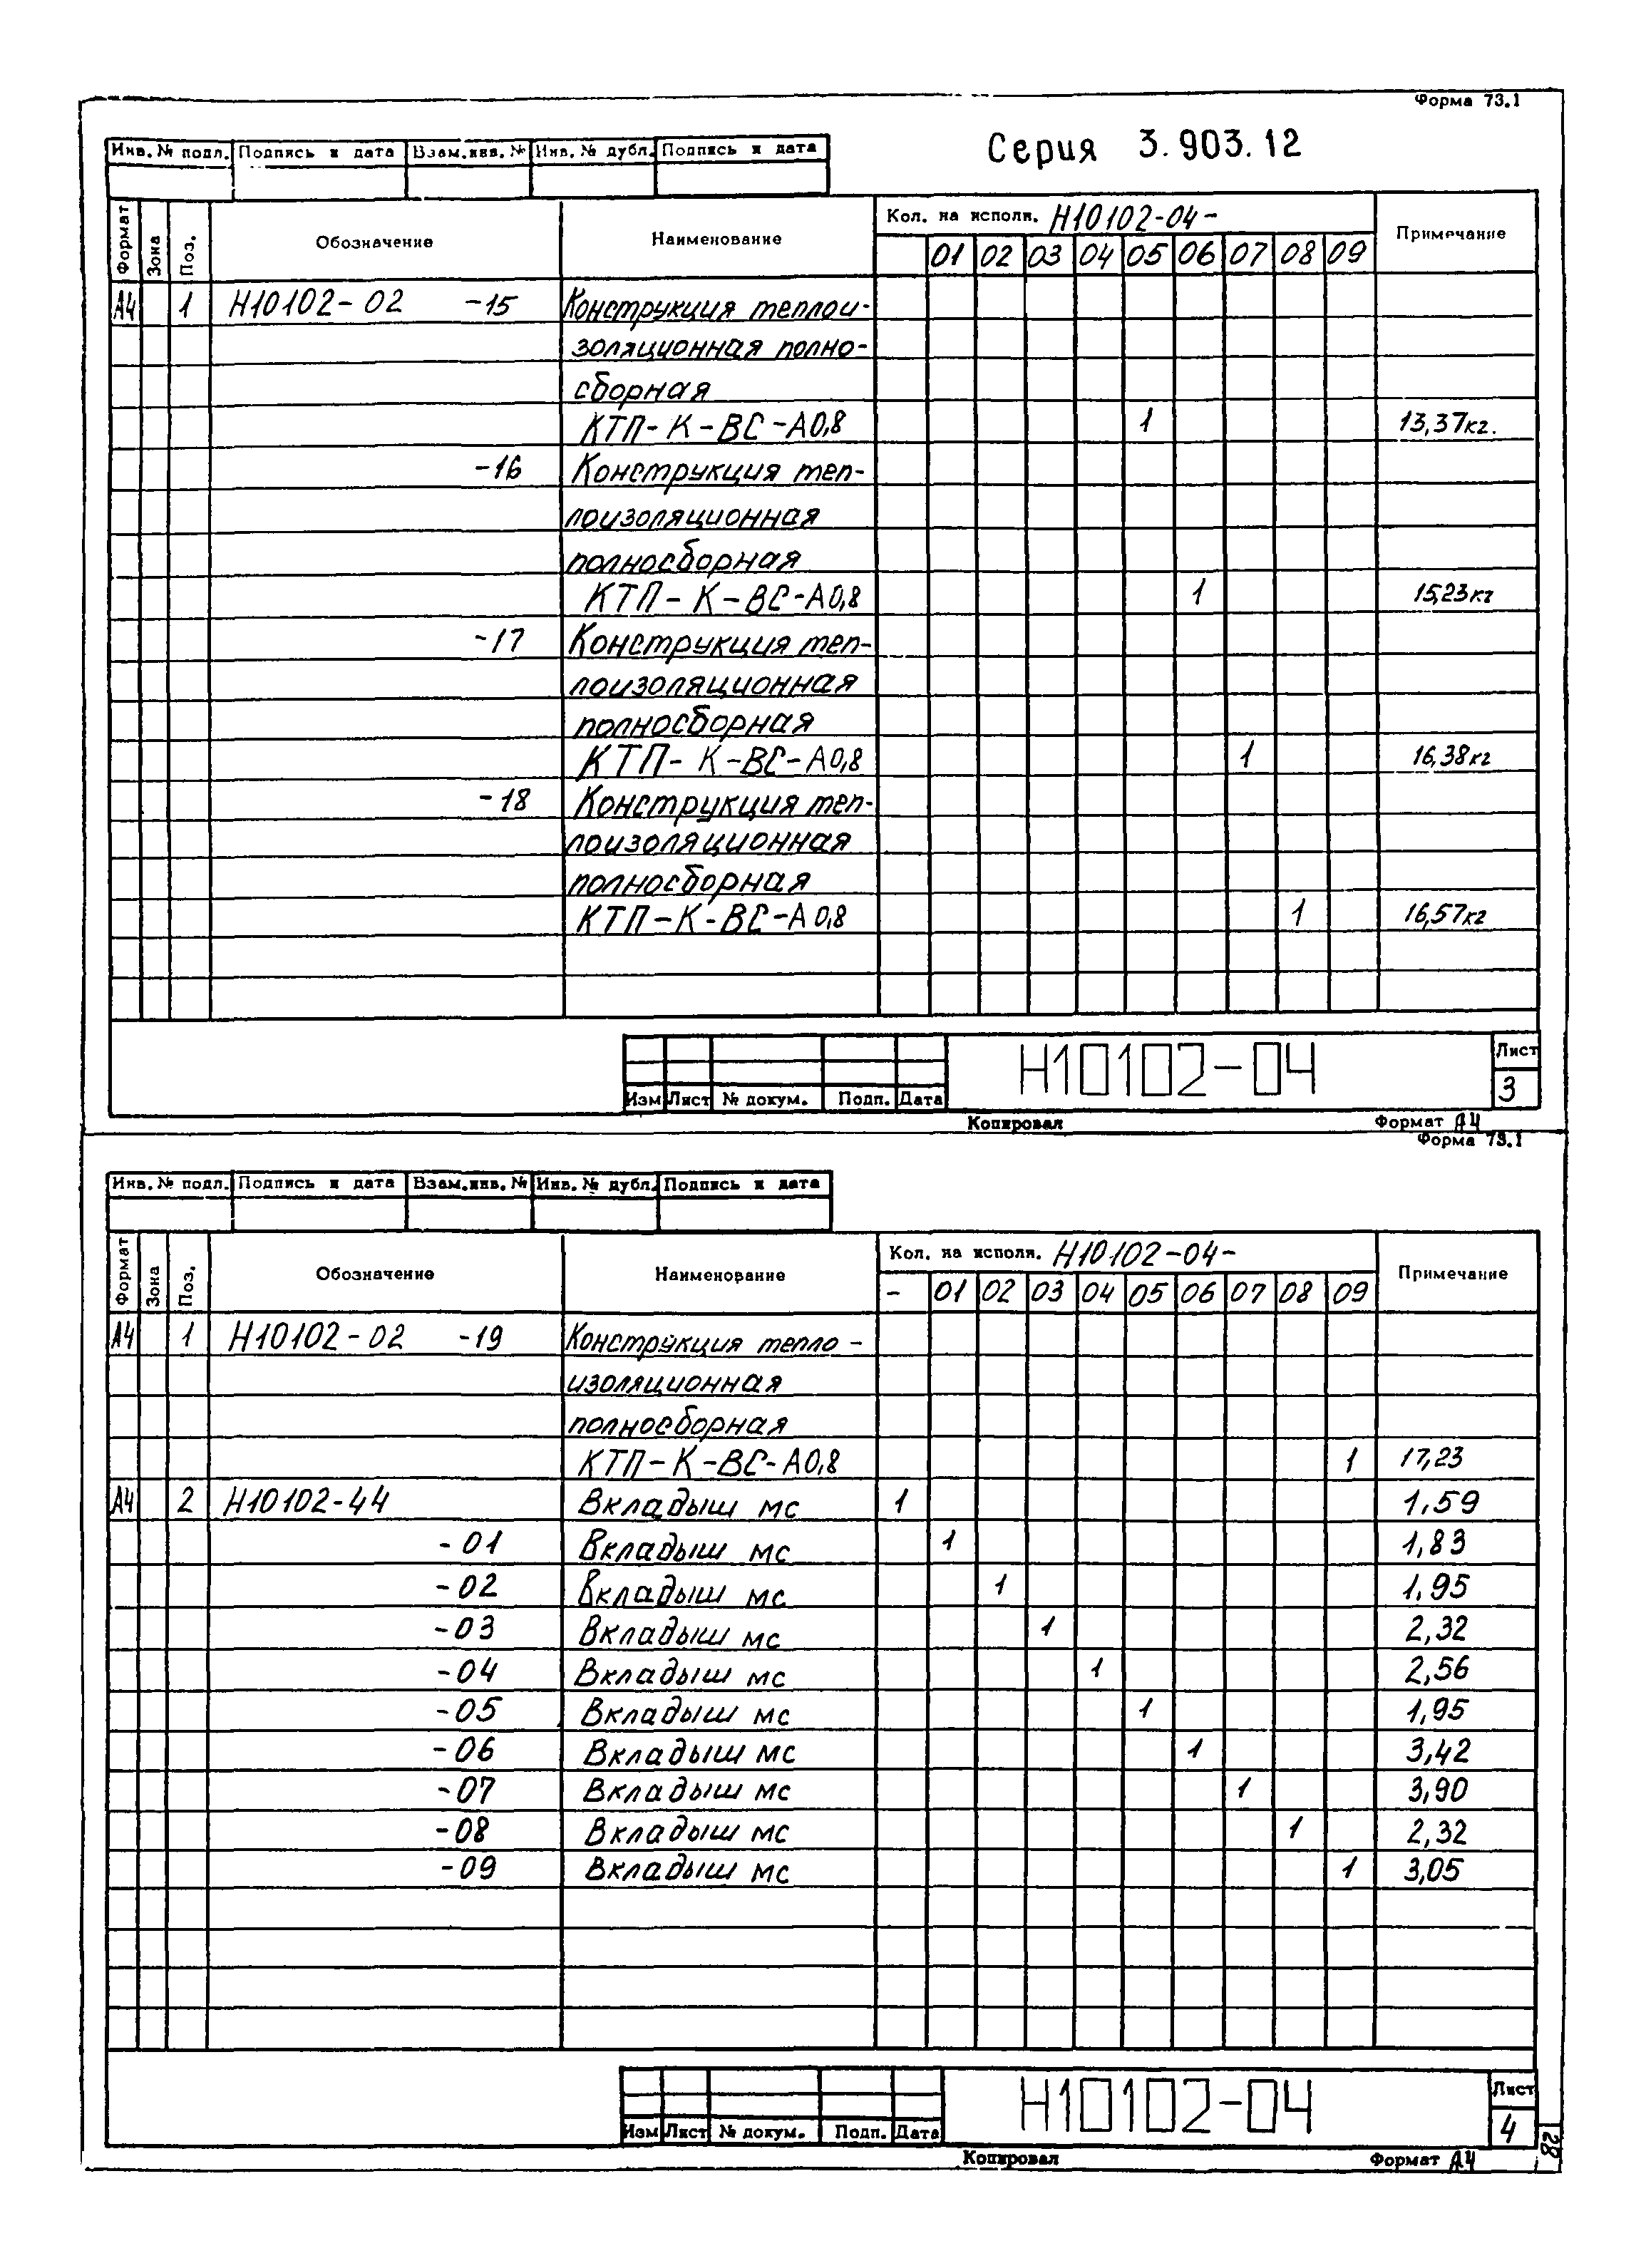 Форма 73.1
Серия 3.903.12
Инв. № подл. Подпись и дата Взам. инв. № Инв. № дубл. Подпись и дата
Формат Зона Поз. Обозначение Наименование Кол. на исполн. Н10102-04- Примечание
01 02 03 04 05 06 07 08 09
А4 1 Н10102-02 -15 Конструкция теплои-
золяционная полно-
сборная
КТП-К-ВС-А0,8 1 13,37кг.
-16 Конструкция теп-
лоизоляционная
полносборная
КТП-К-ВС-А0,8 1 15,23кг
-17 Конструкция теп-
лоизоляционная
полносборная
КТП-К-ВС-А0,8 1 16,38кг
-18 Конструкция теп-
лоизоляционная
полносборная
КТП-К-ВС-А0,8 1 16,57кг
Н10102-04
Лист
3
Изм Лист № докум. Подп. Дата
Копировал Формат А4
Форма 73.1
Инв. № подл. Подпись и дата Взам. инв. № Инв. № дубл. Подпись и дата
Формат Зона Поз. Обозначение Наименование Кол. на исполн. Н10102-04- Примечание
- 01 02 03 04 05 06 07 08 09
А4 1 Н10102-02 -19 Конструкция тепло-
изоляционная
полносборная
КТП-К-ВС-А0,8 1 17,23
А4 2 Н10102-44 Вкладыш мс 1 1,59
-01 Вкладыш мс 1 1,83
-02 Вкладыш мс 1 1,95
-03 Вкладыш мс 1 2,32
-04 Вкладыш мс 1 2,56
-05 Вкладыш мс 1 1,95
-06 Вкладыш мс 1 3,42
-07 Вкладыш мс 1 3,90
-08 Вкладыш мс 1 2,32
-09 Вкладыш мс 1 3,05
Н10102-04
Лист
4
Изм Лист № докум. Подп. Дата
Копировал Формат А4
28